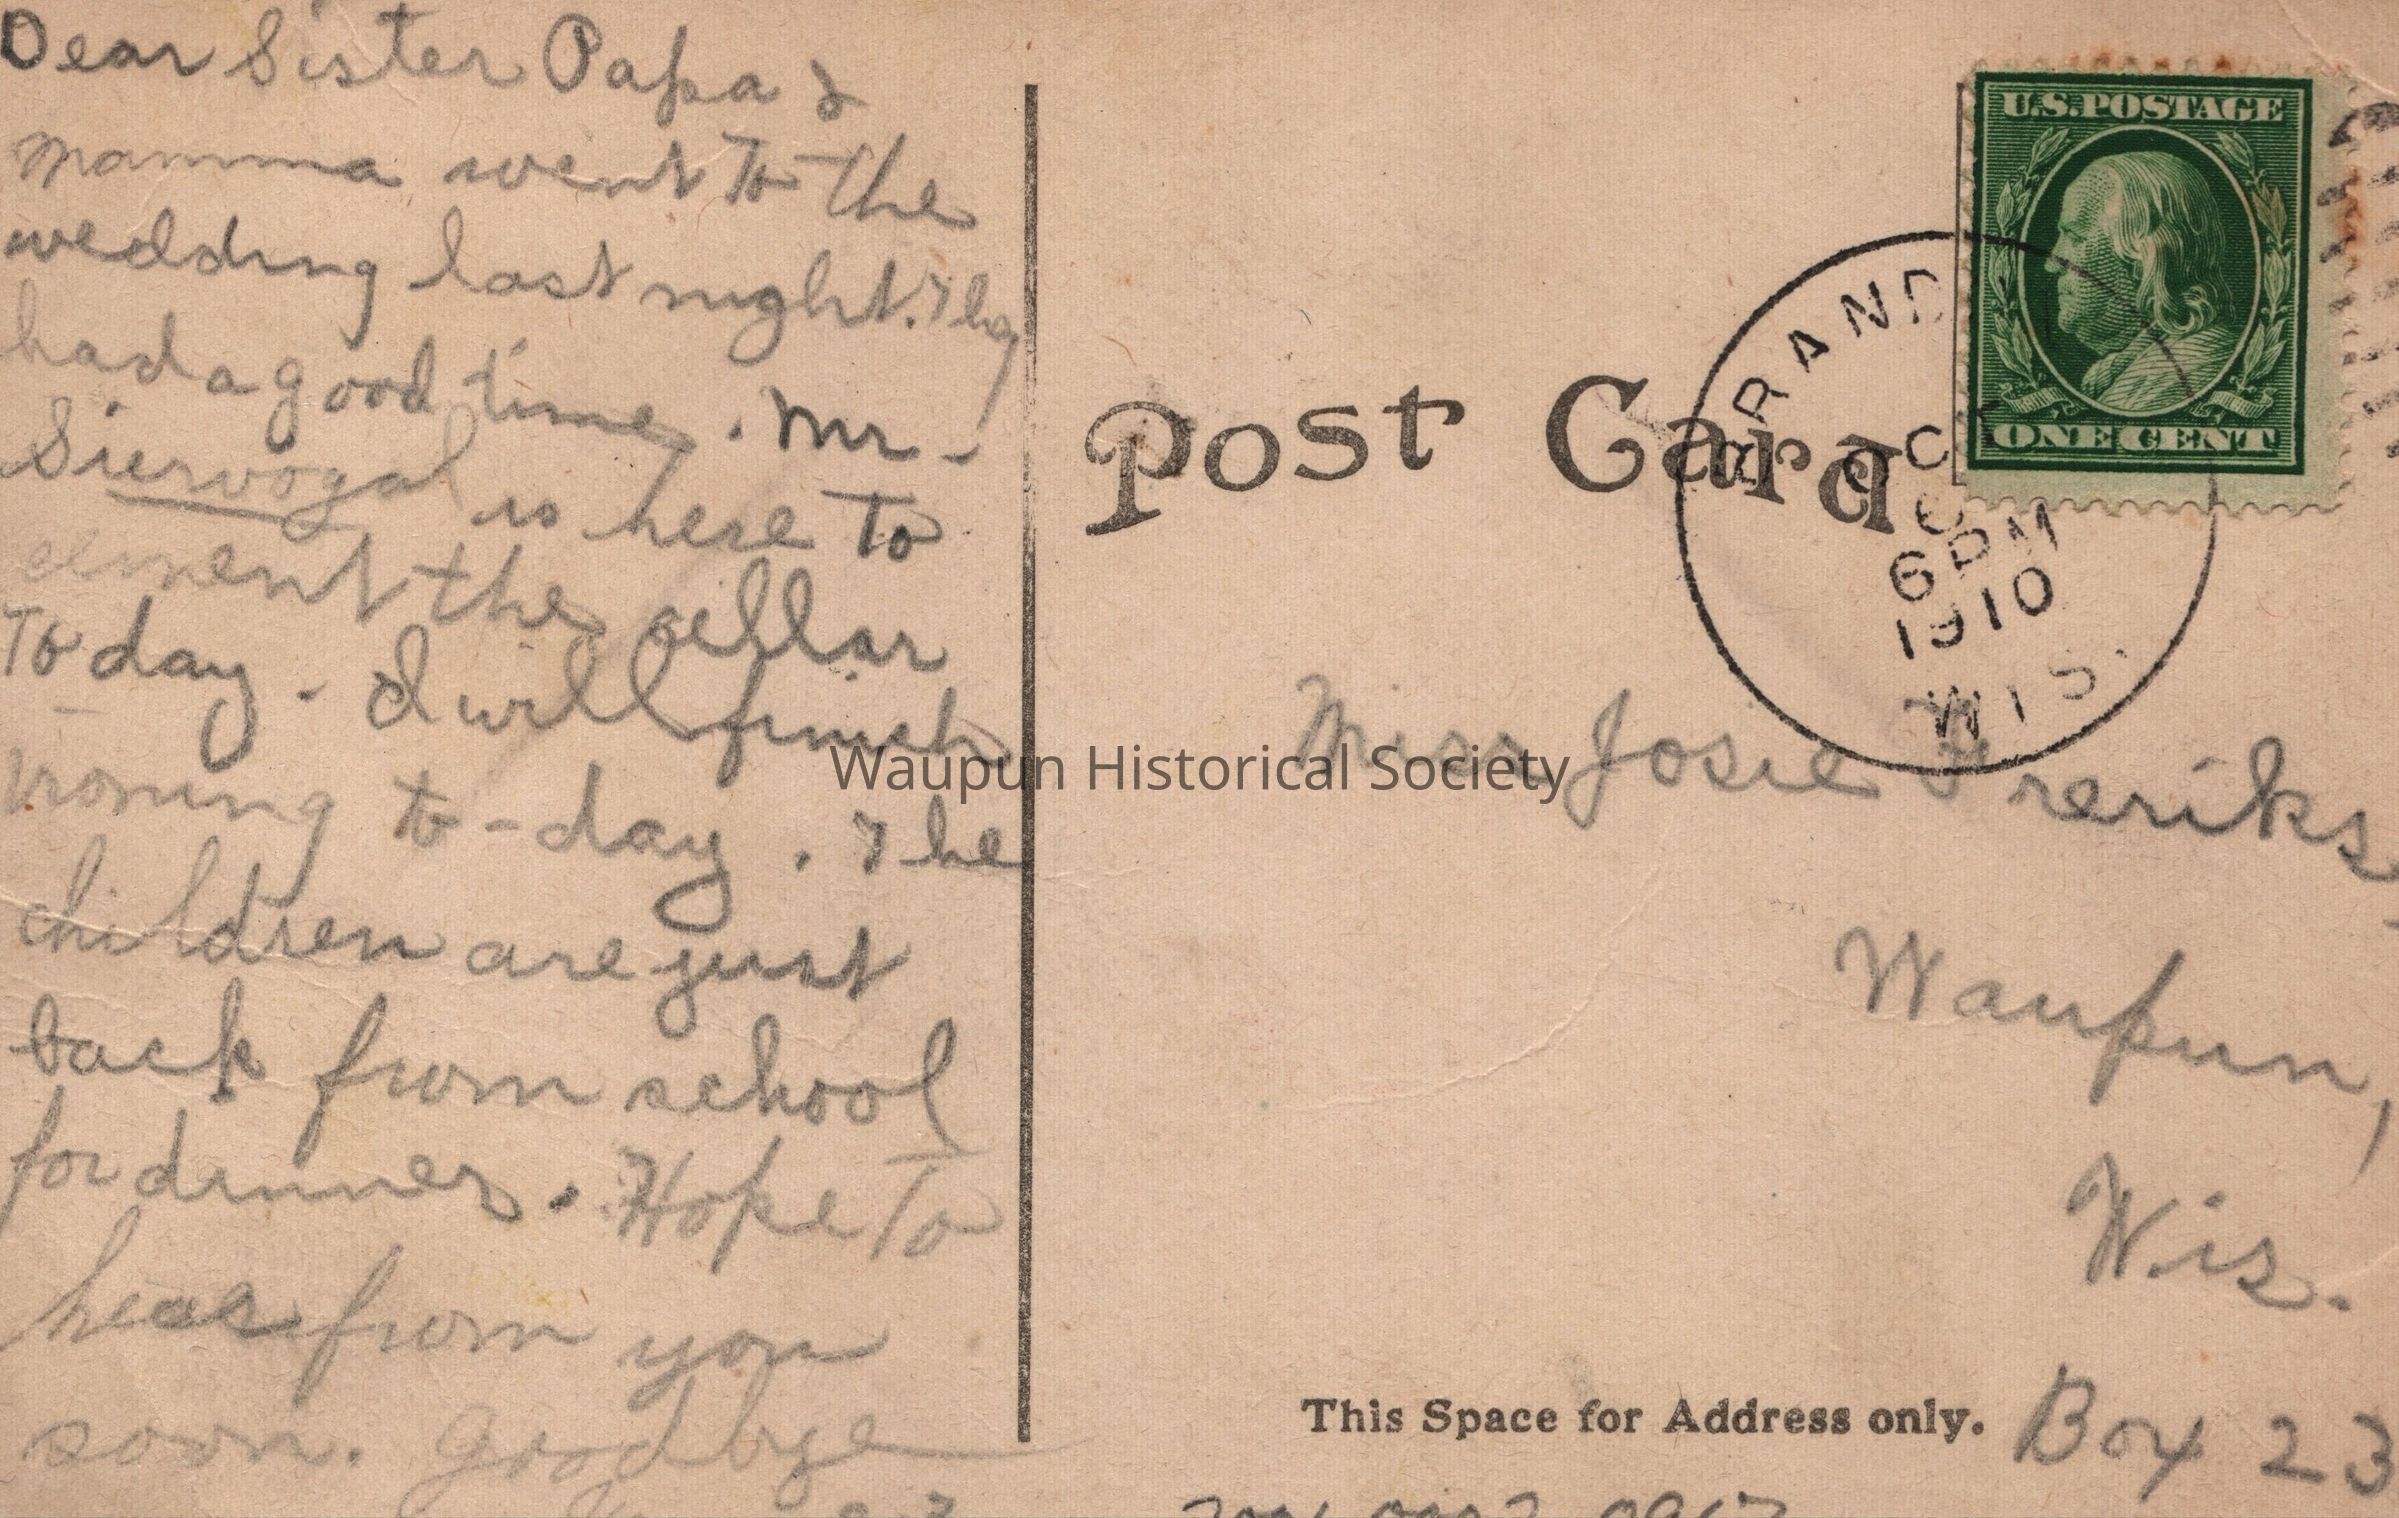 Dear Sister Papa &
mamma went To the
wedding last night. They
had a good time. Mr.
Siervogal is here to
cement the cellar
To day. I will finish
ironing to-day. The
children are just
back from school
for dinner. Hope To
hear from you
soon. Goodbye
Post Card
U.S. POSTAGE
ONE CENT
BRAND
6 PM
1910
WIS.
Miss Josie Freriks
Waupun,
Wis.
Box 23
This Space for Address only.
Waupun Historical Society